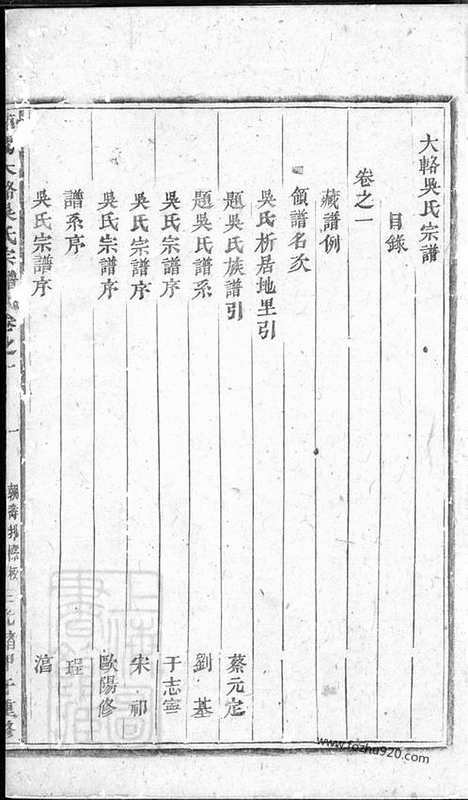 大輅吳氏宗譜
目錄
卷之一
藏譜例
領譜名次
吳氏析居地里引
題吳氏族譜引 蔡元定
題吳氏譜系 劉基
吳氏宗譜序 于志寧
吳氏宗譜序 宋祁
吳氏宗譜序 歐陽修
譜系序 珵
吳氏宗譜序 渻
大輅吳氏宗譜 卷之一
上海圖書館藏
www.fozhu920.com